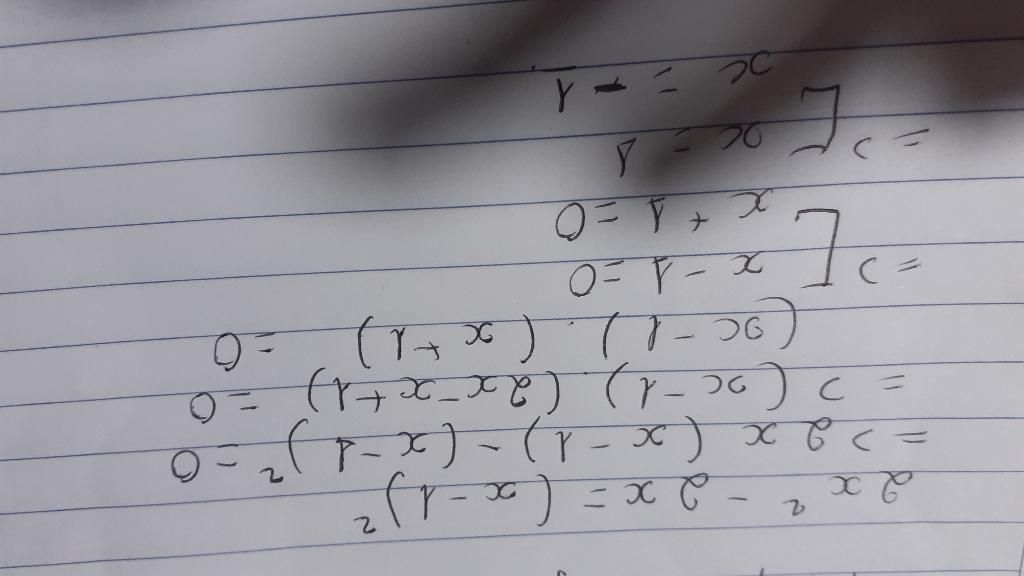 2x² - 2x = (x - 1)²
=> 2x (x - 1) - (x - 1)² = 0
=> (x - 1) . (2x - x + 1) = 0
(x - 1) . (x + 1) = 0
=> [ x - 1 = 0
x + 1 = 0
=> [ x = 1
x = - 1